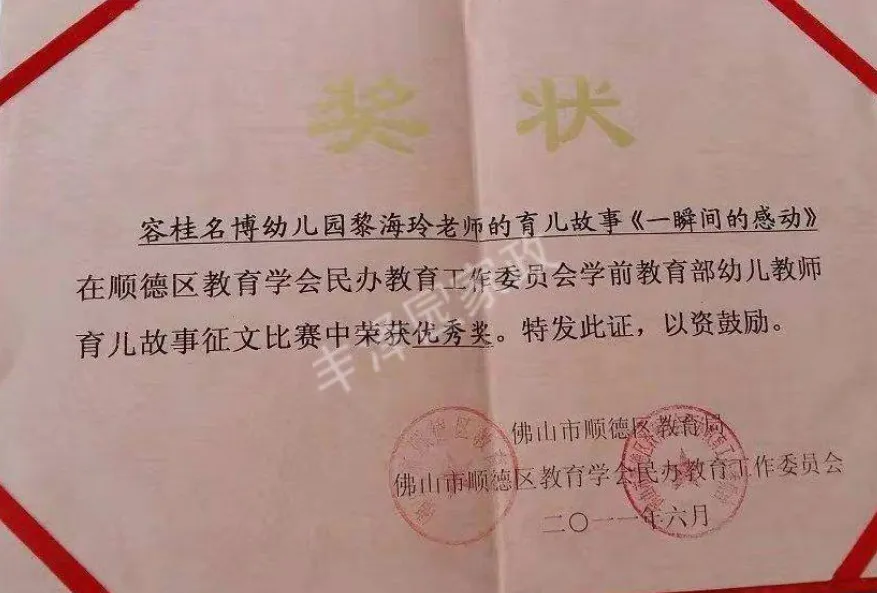 奖状
容桂名博幼儿园黎海玲老师的育儿故事《一瞬间的感动》
在顺德区教育学会民办教育工作委员会学前教育部幼儿教师
育儿故事征文比赛中荣获优秀奖。特发此证，以资鼓励。
丰泽园家政
佛山市顺德区教育局
佛山市顺德区教育学会民办教育工作委员会
二〇一一年六月